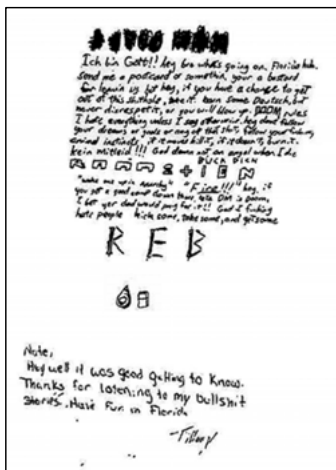 Ich bin Gott!! hey bro whats going on. Florida huh.
send me a postcard or somethin. your a bastard
for leavin us but hey, if you have a chance to get
out of this shithole, use it. learn some Deutsch, but
never disrespect it, or you will blow up. DOOM rules
I hate everything unless I say otherwise. hey dont follow
your dreams or goals or any of that shit, follow your fucking
animal instincts, if it moves kill it, if it doesn't burn it.
kein mitleid!!! God damn not an angel when I die
DUCK DICH
"wake me up in anarchy" "Fire!!!" hey, if
you get a good comp down there, tell Dad is Doom,
I bet yer dad would pay for it!! God I fucking
hate people
R E B
Note,
Hey well it was good getting to know.
Thanks for listening to my bullshit
stories. Have fun in Florida